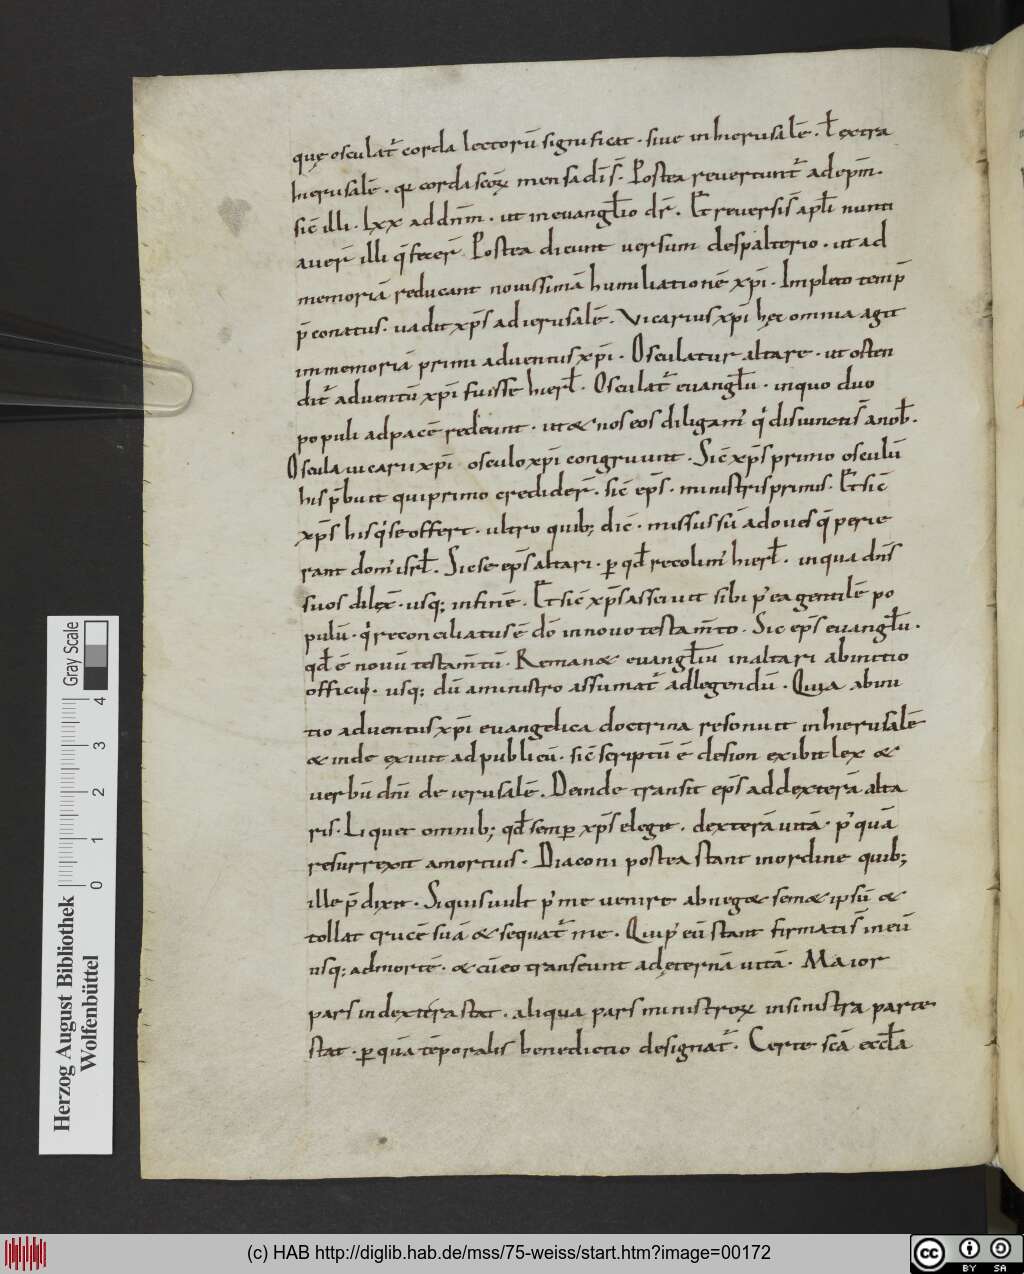 quę osculat̄ corda lectorū significat · siue in hierusalē · ł extra
hierusalē · q̨ corda scōꝝ mensa dī s̄ · Postea reuertunt̄ ad ep̄m ·
sic̄ illi · lxx ad dnm̄ · ut in euangłio dr̄ · Et reuersis apłi nunti
auer̄ illi q̄ fecer̄ Postea dicunt uersum de spalterio · ut ad
memoriā reducant nouissimā humiliationē xp̄i · Impleto temp̄
p̄conatus · uadit xp̄s ad ierusalē · Vicarius xp̄i hęc omnia agit
in memoriā primi aduentus xp̄i · Osculatur altare · ut osten
dit̄ aduentū xp̄i fuisse hierł · Osculat̄ euangłu · in quo duo
populi ad pacē redeunt · ut & nos eos diligam̄ qͥ disiuncti s̄ a nob̄ ·
Oscula uicarii xp̄i osculo xp̄i congruunt · Sic̄ xp̄s primo osculū
his p̄buit qui primo crediderr̄ · sic̄ ep̄s · ministris primis · Et sic̄
xp̄s his qͥ se offert · ultro quib; dic̄ · missus sū ad oues q̄ perie
rant dom̄ isrł · Sic se ep̄s altari · ꝑ qđ recolim̄ hierł · in qua dn̄s
suos dilex̄ · usq; in finē · Et sic̄ xp̄s asciuit sibi p̓ ea gentilē po
pulū · qͥ reconciliatus ē dō in nouo testam̄to · Sic ep̄s euangłu ·
qđ ē nouū testam̄tū · Reman& euangłiu in altari ab initio
officii · usq; dū a ministro assumat̄ ad legendū · Quia ab ini
tio aduentus xp̄i euangelica doctrina resonuit in hierusalē
& inde exiuit ad publicū · sic̄ scriptū ē de sion exibit lex &
uerbū dn̄i de ierusalē · Deinde transit ep̄s ad dexterā alta
ris · Liquet omnib; qđ semꝑ xp̄s elegit · dexterā uitā · p̓ quā
resurrexit a mortuis · Diaconi postea stant in ordine quib;
ille p̄dixit · Si quis uult p̓ me uenire abneg& sem& ipsū &
tollat crucē suā & sequat̄ me · Qui p̓ eū stant firmati s̄ in eū
usq; ad mortē · & cū eo transeunt ad ęternā uitā · Maior
pars in dextera stat · aliqua pars ministroꝝ in sinistra parte
stat · ꝑ quā tēporalis benedictio designat̄ · Certe scā eccła
Herzog August Bibliothek
Wolfenbüttel
0 1 2 3 4
Gray Scale
(c) HAB http://diglib.hab.de/mss/75-weiss/start.htm?image=00172
cc BY SA